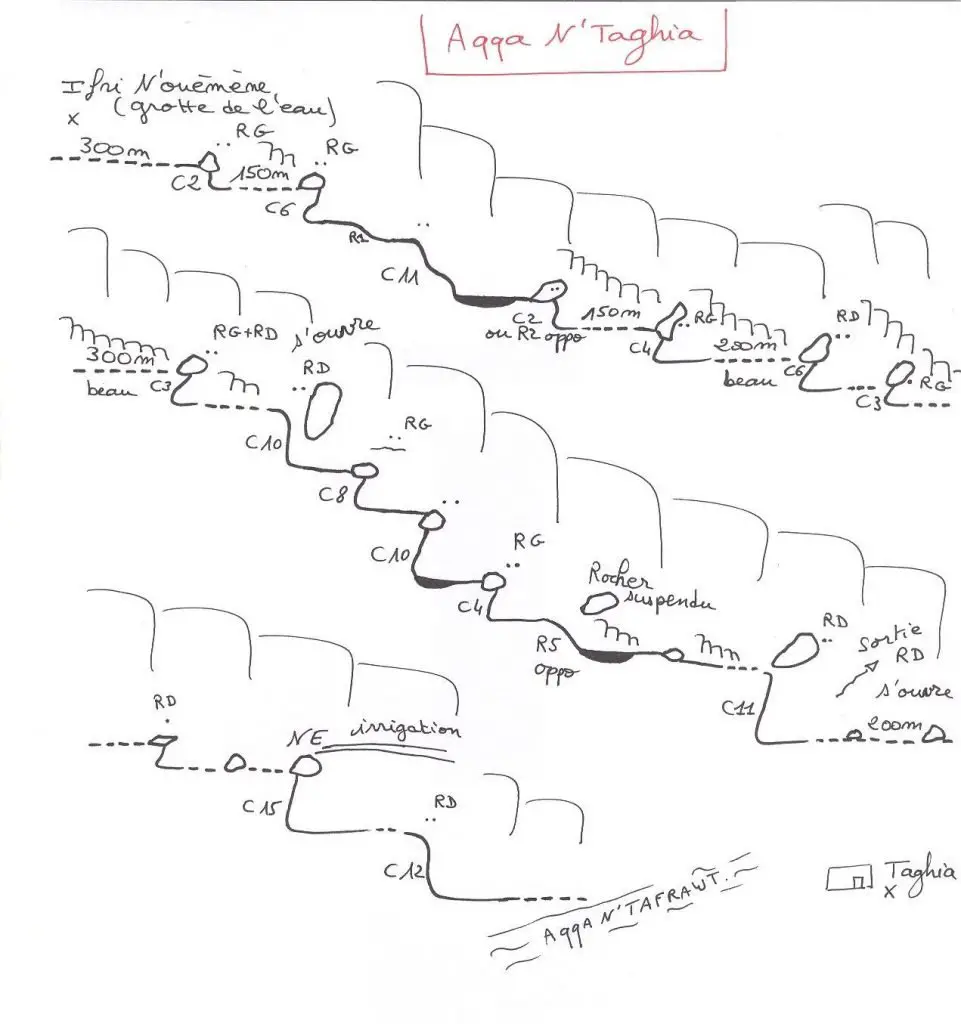 Aqqa N'Taghia
Ifri N'ouēmène
(grotte de l'eau)
x
300m
RG
C2
150m
RG
C6
R1
C11
C2
ou R2 oppo
150m
RG
C4
200m
beau
RD
C6
C3
RG
300m
beau
RG+RD
s'ouvre
C3
RD
C10
RG
C8
C10
RG
C4
Rocher
suspendu
R5
oppo
RD
C11
Sortie
RD
s'ouvre
200m
RD
NE
irrigation
C15
RD
C12
AqqA N'TAFRAWT.
Taghia
x